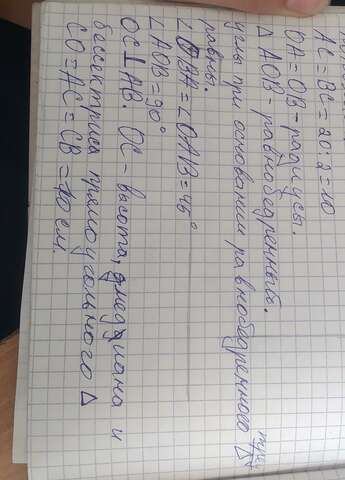 AC = BC = 20:2 = 10
OA = OB - радиусы.
Δ AOB - равнобедренный.
углы при основании равнобедренного Δ
равны.
∠OBA = ∠OAB = 45°
∠AOB = 90°
OC⊥AB. OC - высота, медиана и
бессектриса прямоугольного Δ
CO = AC = CB = 10 см.